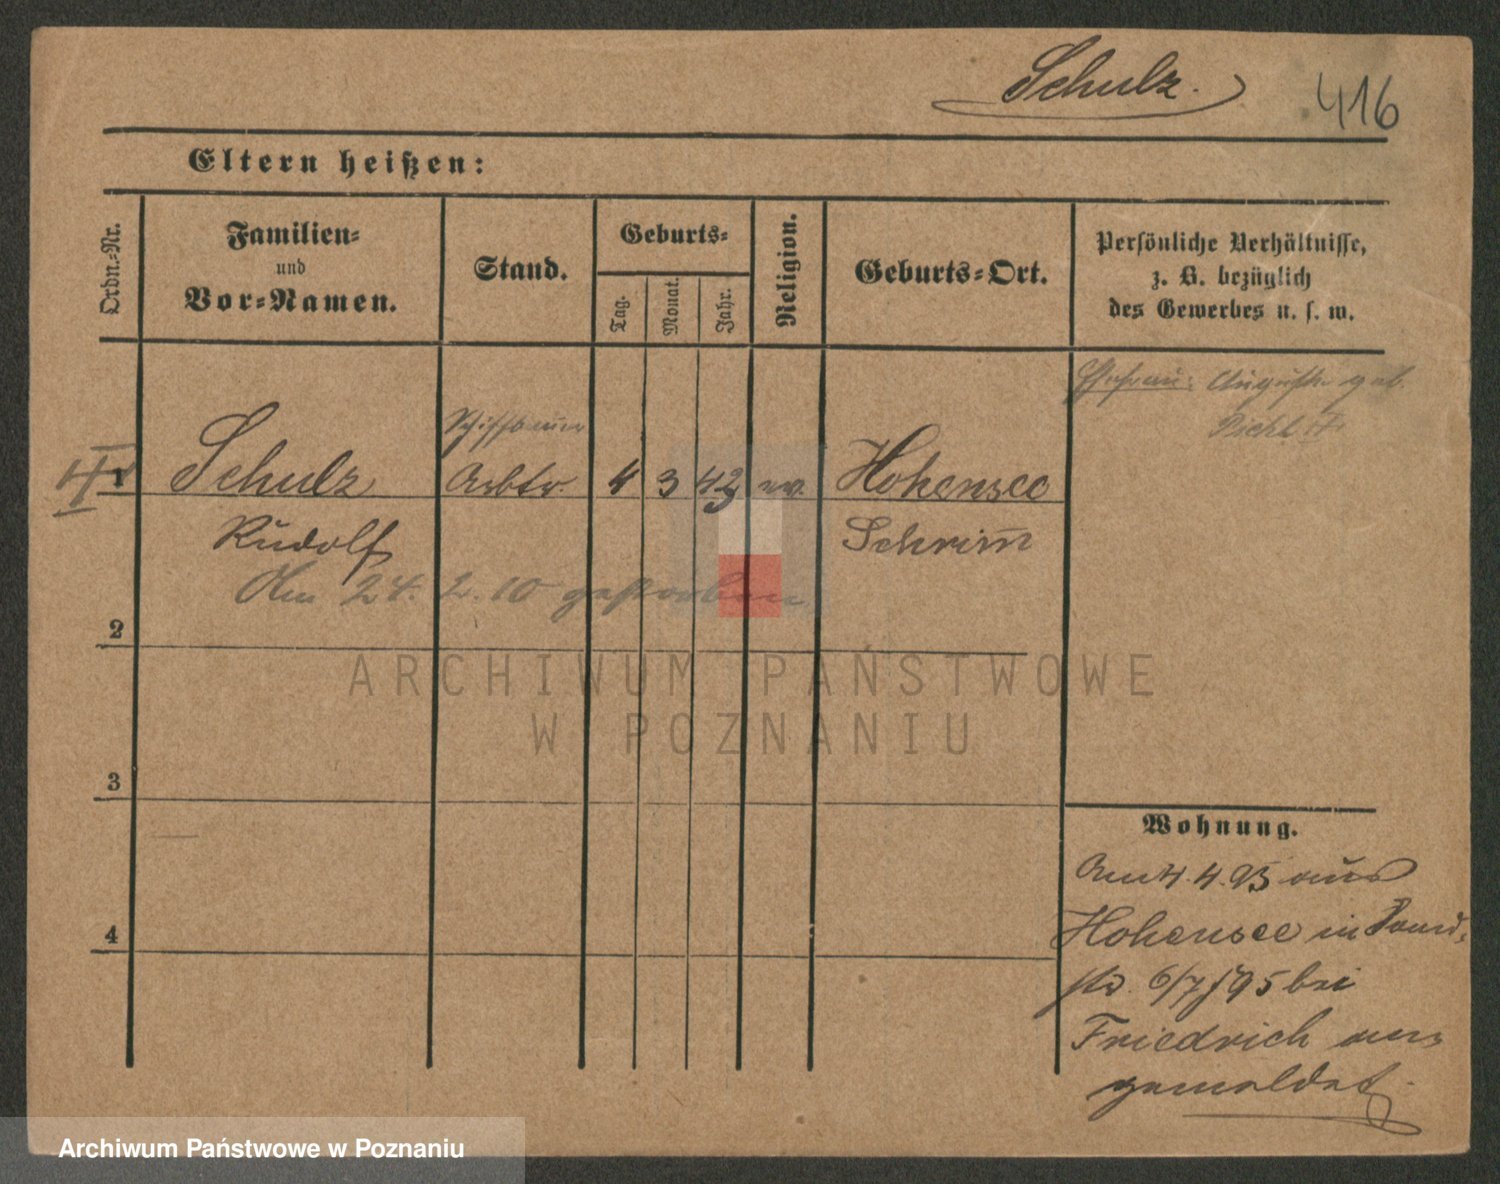 Schulz.
416
Eltern heißen:
Ordn.-Nr.
Familien-
und
Vor-Namen.
Stand.
Geburts-
Tag.
Monat.
Jahr.
Religion.
Geburts-Ort.
Persönliche Verhältnisse,
z. B. bezüglich
des Gewerbes u. s. w.
Ehefrau: Auguste geb.
Schiffbauer
1 Schulz Arbtr. 4 3 42 ev. Hohensee
Rudolf Schrimm
Am 24. 2. 10 gestorben
2
ARCHIWUM PAŃSTWOWE
W POZNANIU
3
4
Wohnung.
Am 4. 4. 95 aus
Hohensee in
str. 6/7 95 bei
Friedrich an-
gemeldet.
Archiwum Państwowe w Poznaniu